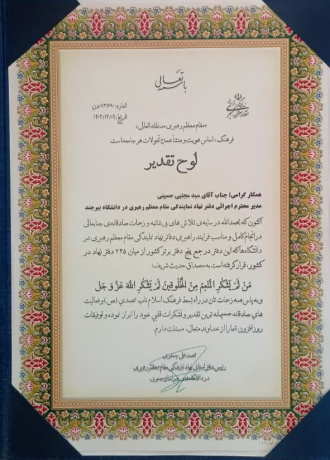 باسمه تعالی
شماره: ۷۳۶۹۰/دن
تاریخ: ۱۴۰۲/۱۲/۰۹
مقام معظم رهبری مدظله العالی:
فرهنگ، اساس هویت و منشأ عمده تحولات هر جامعه است.
لوح تقدیر
همکار گرامی؛ جناب آقای سید مجتبی حسینی
مدیر محترم اجرائی دفتر نهاد نمایندگی مقام معظم رهبری در دانشگاه بیرجند
اکنون که بحمدالله در سایه‌ی تلاش های بی شائبه و زحمات صادقانه‌ی جنابعالی
در انجام کامل و مناسب فرایند راهبری دفاتر نهاد نمایندگی مقام معظم رهبری در
دانشگاه‌ها که این دفتر در جمع پنج دفتر برتر کشور از میان ۲۲۵ دفتر نهاد در
کشور، قرار گرفته است به مصداق حدیث شریف:
مَنْ لَمْ یَشْکُرِ الْمُنْعِمَ مِنَ الْمَخْلُوقِینَ لَمْ یَشْکُرِ اللهَ عَزَّ وَ جَلَّ
و به پاس همه زحمات تان در راه بسط فرهنگ اسلام ناب محمدی (ص) و فعالیت
های صادقانه صمیمانه ترین تقدیر و تشکرات قلبی خود را ابراز نموده و توفیقات
روزافزون شما را از خداوند متعال، مسئلت دارم.
رئیس دفتر نهاد نمایندگی مقام معظم رهبری